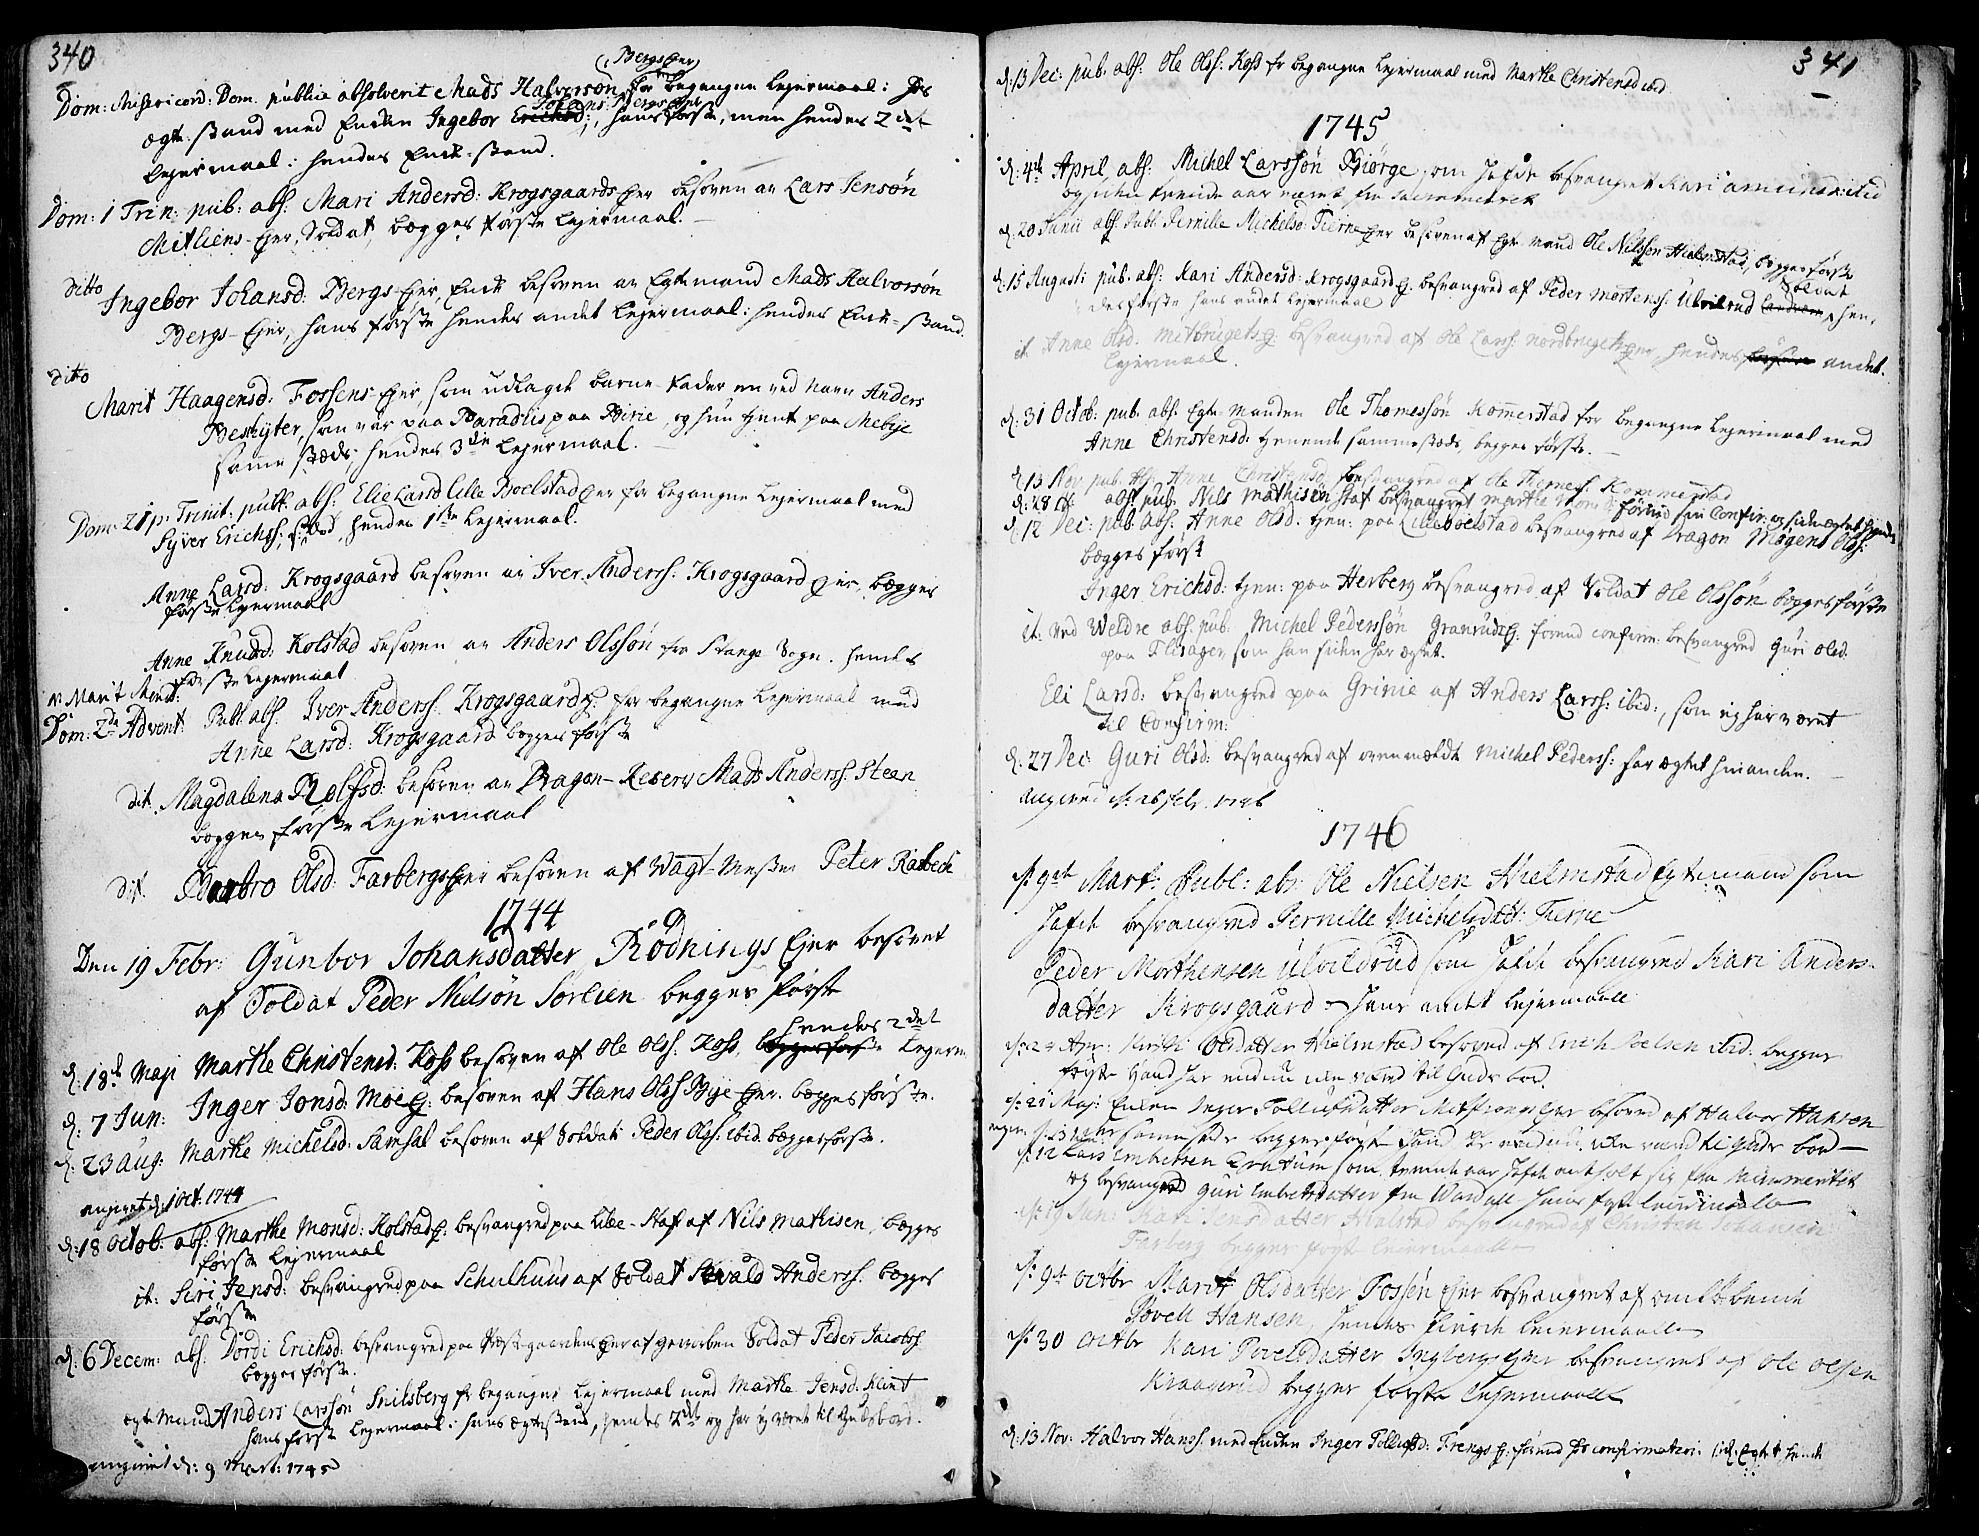 340
(Bergs Ejer)
Dom: Misericord: Dom. publice absolverit Mads Halvorsøn for begangne Lejermaal i sin
Johans: Bergs Ejer
Egte-stand med Encken Ingebor Erichsd:, hans første, men hendes 2det
Lejermaal i hendes Enke-stand.
Dom: 1 Trin: pub: abs: Mari Andersd: Krogsgaards-Ejer besoven av Lars Jensøn
Mitliens-Ejer, Soldat, begges første Lejermaal.
Ditto Ingebor Johansd: Bergs-Ejer, Enke besoven av Egtemand Mads Halvorsøn
Bergs-Ejer, hans første hendes andet Lejermaal i hendes Enke-stand.
Ditto
Marit Haagensd: Fossens-Ejer, som udlagde barne-fader en ved navn Anders
, som var paa Paradiis paa Birie, og hun tient paa Mebye
samme stæds, hendes 3die Lejermaal.
Dom: 21 p: Trinit: publ: abs: Elie Larsd Lille Boelstad Ejer for begangne Lejermaal med
Syver Erichss: ibid, hendes 1ste Lejermaal.
Anne Larsd: Krogsgaard besoven av Iver Anderss: Krogsgaard Ejer, begges
første Lejermaal
Anne Knudsd: Kolstad besoven av Anders Olssøn fra Stange Sogn. hendes
første Lejermaal
Marit
Dom: 2de Advent: Publ abs: Iver Anderss: Krogsgaard E: for begangne Lejermaal med
Anne Larsd: Krogsgaard begges første
dit. Magdalena Rolfsd: besoven av Dragon-Reserv Mads Anderss: Steen
begges første Lejermaal
dit. Barbro Olsd: Farbergs Ejer besoven af Vagt-Mester Peter Rasbech
1744
Den 19 Febr: Gunbor Johansdatter Rödnings Ejer besovet
af Soldat Peder Nielsön Sorlien begges første
hendes 2det
d: 18de Maji Marthe Christensd: Koss besoven af Ole Olss: Koss, begges første Lejerm:
d: 7 Jun: Inger Jonsd: Moe E: besoven af Hans Olss Bye Ejer. begges første.
d: 23 Aug: Marthe Michelsd: Samsal besoven af Soldat Peder Olss: ibid. begges første.
angivet d: 1 Oct: 1744
d: 18 Octob: abs: Marthe Monsd: Kolstad E: besvangred paa Lille-Staf af Nils Mathisen, begges
første Lejermaal
it: Siri Jensd: besvangred paa Schulhuus af Soldat Anderss: begges
første
d: 6 Decem: abs: Dordi Erichsd: besvangred paa Præstegaardens Ejer af geworben Soldat Peder Jacobss:
begges første.
Egte Mand Anders Larssøn Snilsberg for begangne Lejermaal med Marthe Jensd: Klint
hans første Lejermaal i hans Egtestand, hendes 2det og har ej været til Gudsbord.
angivet d: 9 Mart: 1745
341
d: 13 Dec: pub: abs: Ole Olss: Koss for begangne Lejermaal med Marthe Christensd ibid
1745
d: 4de April abs: Michel Larssøn Biörge, som hafde besvangret Kari ibid
og siden aar været fra Sacramentet
d: 20 Junii abs: Publ: Pernille Michelsd: Tierne Ejer besoven af Egte mand Ole Nilssøn Hielmstad, begges første
Soldat
d: 15 Augusti pub: abs: Kari Andersd: Krogsgaard E: besvangred af Peder Mortenss: Ulvilrud, hen-
des første hans andet Lejermaal
it Anne Olsd. Mitbrugets E: besvangred af Ole Larss: Nordbruget Ejer hendes andet.
Lejermaal.
d: 31 Octob: pub: abs: Egte-Manden Ole Thomessøn Kommerstad for begangne Lejermaal med
Anne Christensd: tienende sammestæds, begges første.
d: 13 Nov pub: abs: Anne Christensd: besvangred af Ole Thomess: Kommerstad
d: 28 abs: pub: Nils Mathisøn Staf besvangret Marthe førend sin Confir: og siden egtet hende
d: 12 Dec: pub: abs: Anne Olsd. tien: paa Lilleboelstad besvangred af Dragon Mogens Olss:
begges først
Inger Erichsd: tien: paa Herberg besvangred af Soldat Ole Olssøn begges første
it: Ved Weldre abs: pub: Michel Pederssøn Granrud E: førend confirm: besvangred Guri Olsd:
paa Flisager, som han siden har egtet.
Eli Larsd: besvangred paa Grinie af Anders Larss: ibid:, som ej har været
til Confirm:
d: 27 Dec: Guri Olsd: besvangred af ovenmeldte Michel Pederss: har egtet hinanden.
Angivet d: 26 febr. 1746
1746
d: 9de Mart: Publ: abs: Ole Nielsen Hielmstad Egtemand som
hafde besvangred Pernille Michelsdatt: Tierne
Peder Morthensen Ulvildrud som hafde besvangred Kari Anders-
datter Krogsgaard - hans andet Lejermaall
d: 24 Apr: Olsdatter Hielmstad besoved af Erich Poelsen ibid: begges
første hand har endnu icke været til Guds bord.
d: 21 Maj: Enken Inger Tollufsdatter Ejer besoved af Halvor Hansen
sammestæds begges første hand har endnu icke været til Guds bord -
d: 12 Lars Embretsen som aar hafde entholt sig fra Sacramentet
og besvangred Guri Embretsdatter fra Wardall hans første Leiermaall
d: 19 Juni Kari Jensdatter Hielstad besvangred af Christen Johansen
Farberg begges første Leiermaall
d: 9de Octbr Marit Olsdatter Fossen Ejer besvangret af omløbende
Povell Hansen, hendes fierde Leiermaall
d: 30 Octbr Kari Povelsdatter Ejer besvangret af Ole Olsen
Kraagerud begges første Leiermaall
d: 13 Nov: Halvor Hanss: med Enken Inger Tollufsd: Trengs E: førend Confirmation: Egtet hende